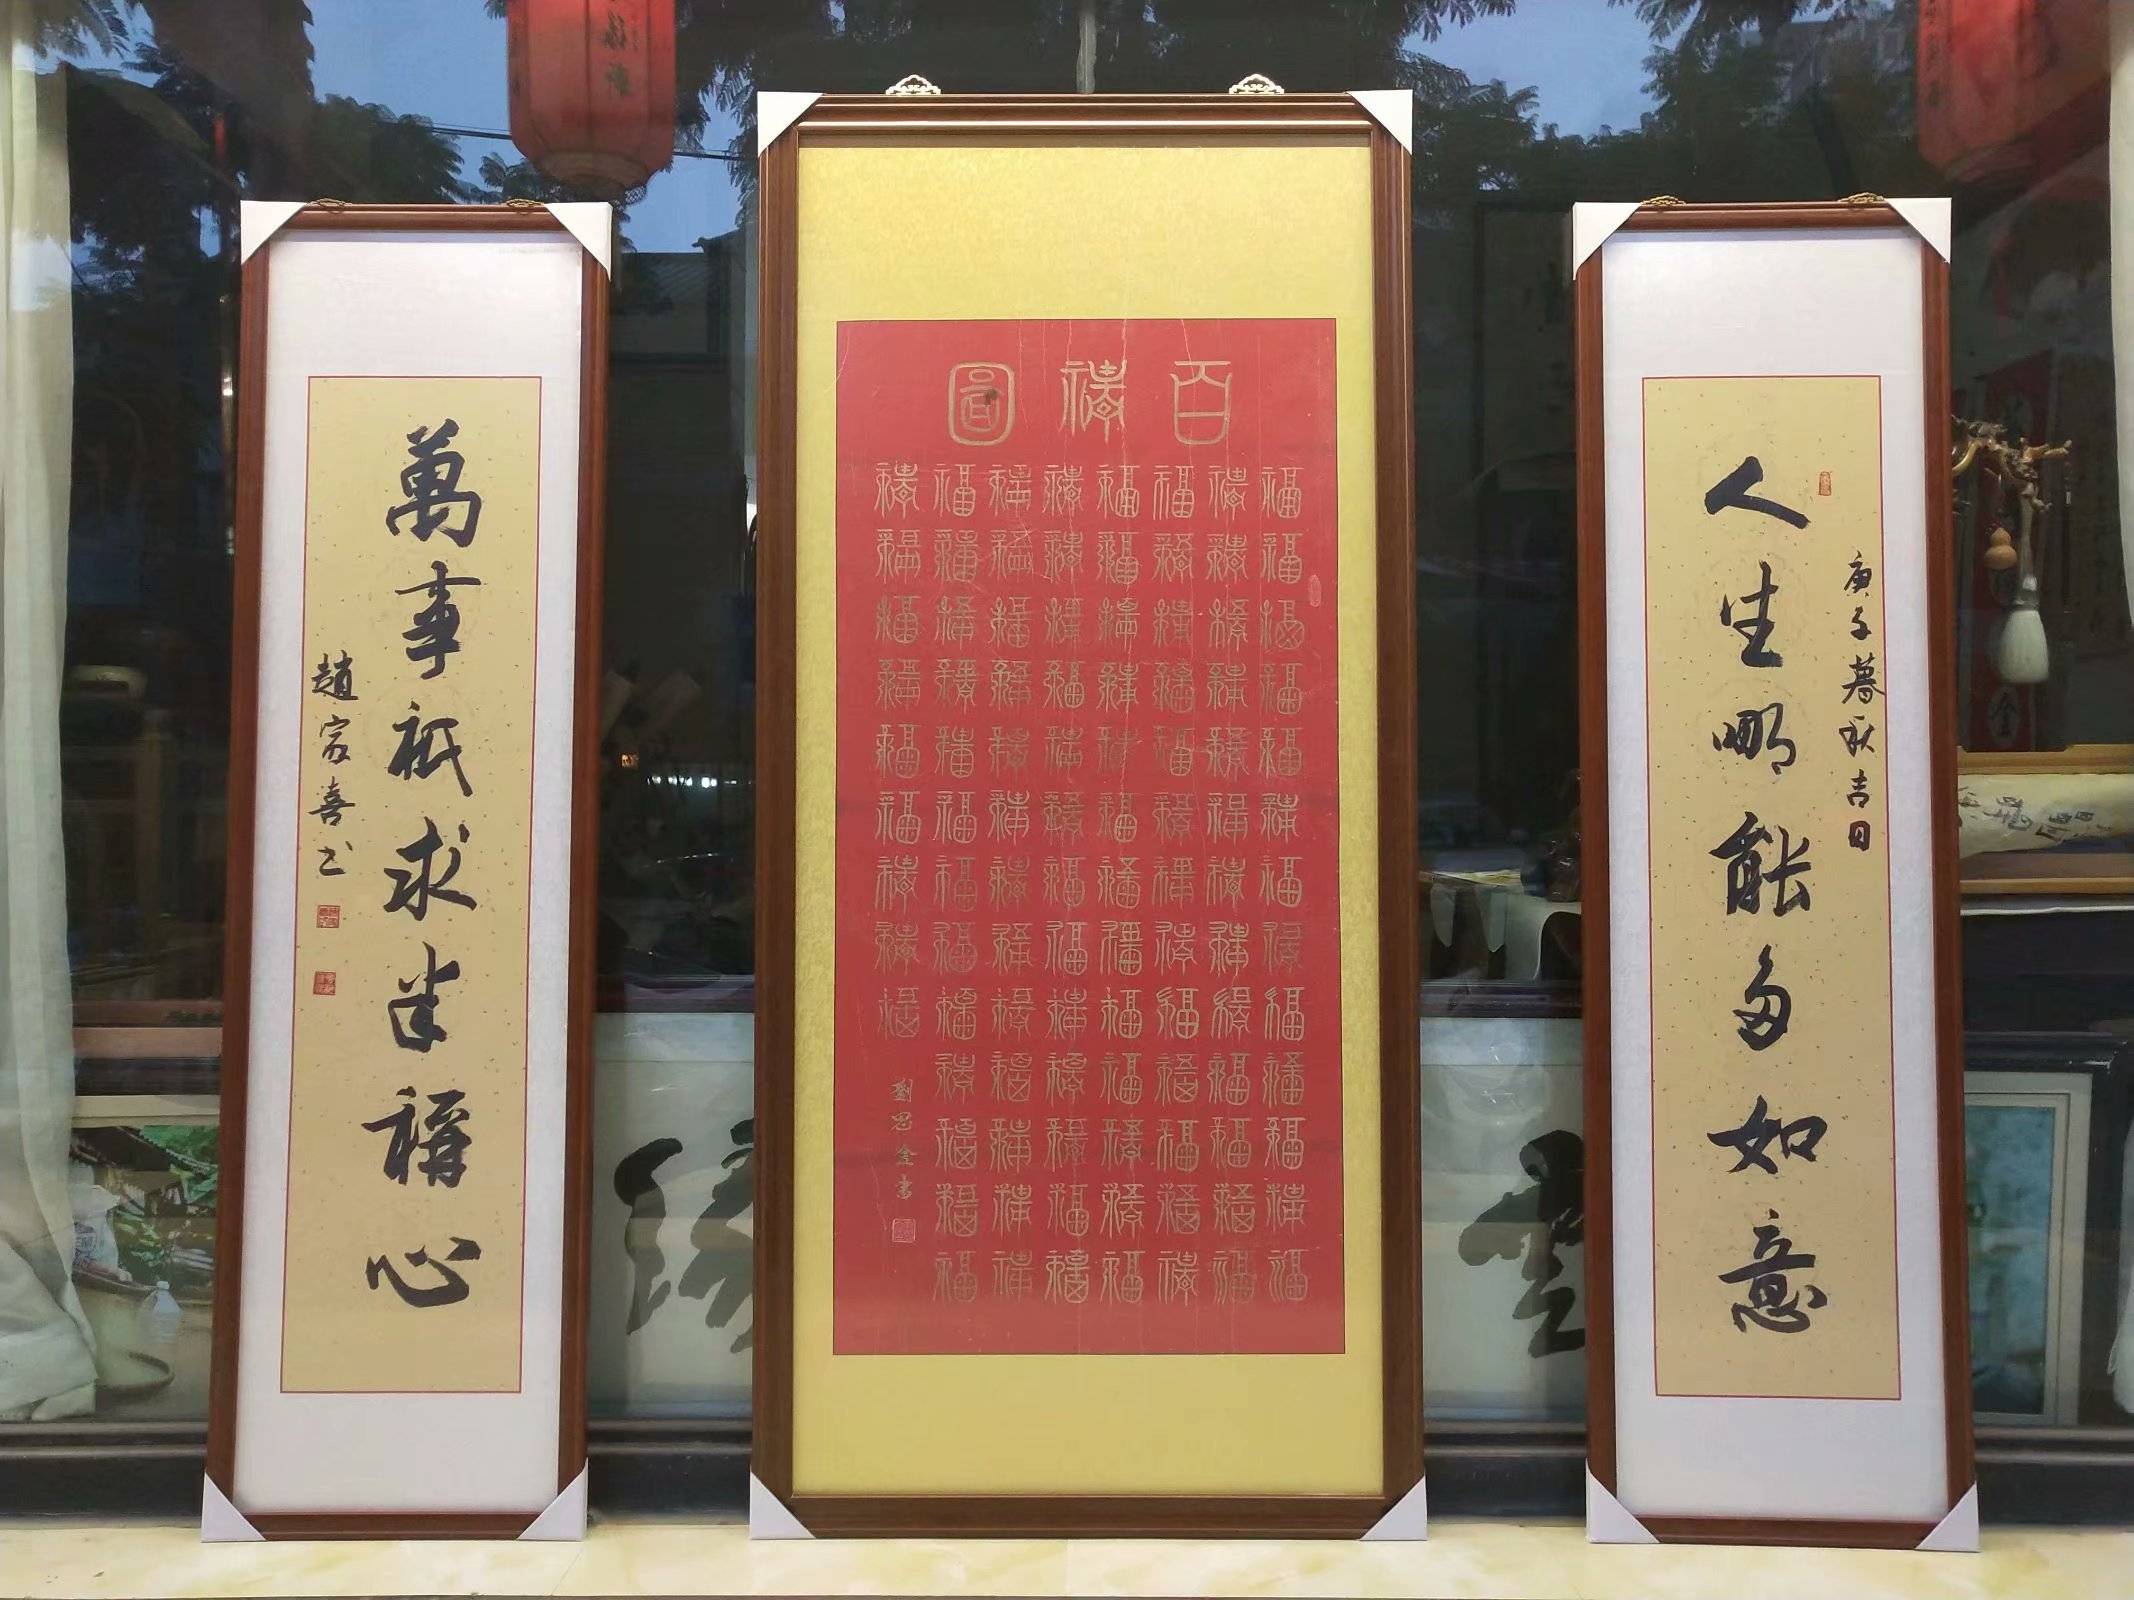 人生哪能多如意
庚子暮秋吉日
百福圖
福福福福福福福福福福福福福
福福福福福福福福福福福福福
福福福福福福福福福福福福福
福福福福福福福福福福福福福
福福福福福福福福福福福福福
福福福福福福福福福福福福福
福福福福福福福福福福福福福
福福福福福福福福福
劉思書
萬事祇求半稱心
趙家喜书